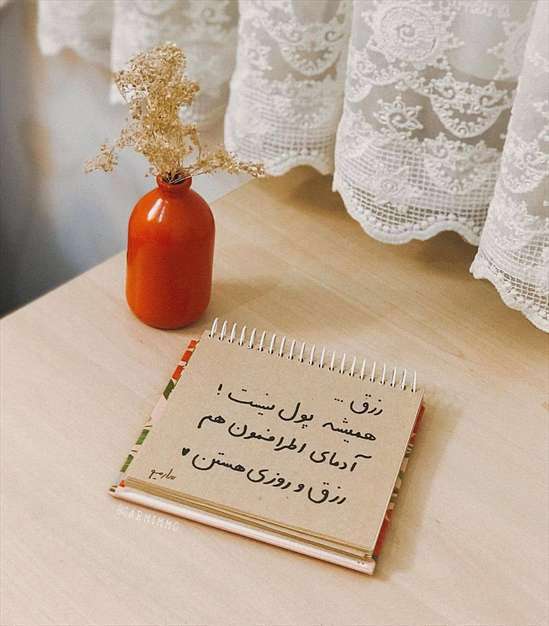 رزق ...
همیشه پول نیست !
آدمای اطرافمون هم
رزق و روزی هستن ♥